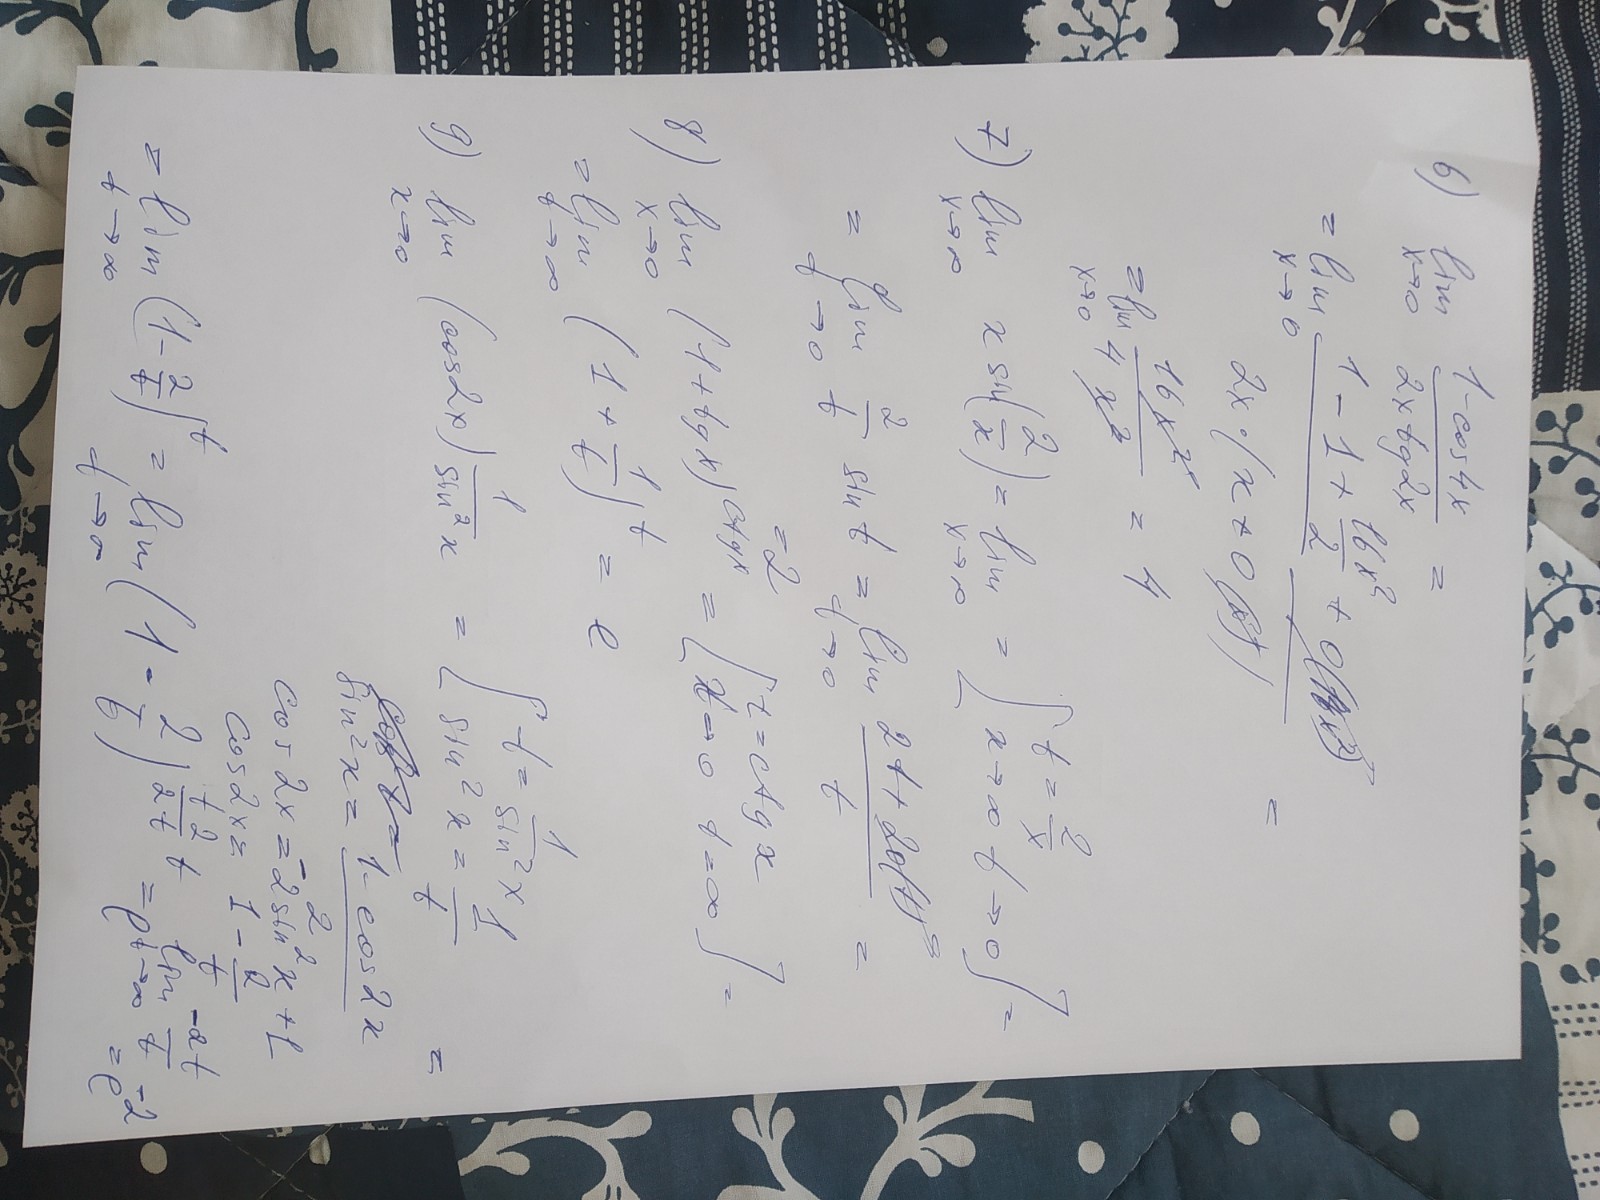 6) lim x→0 (1-cos4x)/(2x tg2x) =
= lim x→0 (1 - 1 + 16x²/2 + 0( ))/(2x·(x + 0( ))) =
= lim x→0 16x²/4x² = 4
7) lim x→∞ x sin(2/x) = lim x→∞ = [t = 2/x x→∞ t→0] =
= lim t→0 2/t sin t = lim t→0 (2t + 20(t)³)/t =
= 2
8) lim x→0 (1+tgx)^ctgx = [t = ctgx x→0 t=∞] =
= lim t→∞ (1 + 1/t)^t = e
9) lim x→0 (cos2x)^(1/sin²x) = [t = 1/sin²x sin²x = 1/t =
sin²x = (1-cos2x)/2
cos2x = -2sin²x + 1
cos2x = 1 - 2/t
= lim t→∞ (1 - 2/t)^t = lim t→∞ (1 - 2/t)^(t/2 · 2/t · t) = e^(lim t→∞ -2t/t) = e^-2